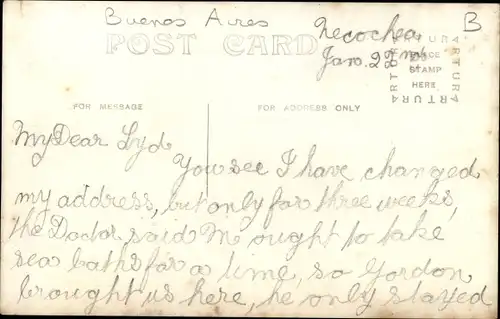 Buenos Aires
Necochea
B
POST CARD
Jan. 22
ARTURA
PLACE
STAMP
HERE
FOR MESSAGE
FOR ADDRESS ONLY
My Dear Lyd
You see I have changed
my address, but only for three weeks,
the Doctor said We ought to take
sea baths for a time, so Gordon
brought us here, he only stayed